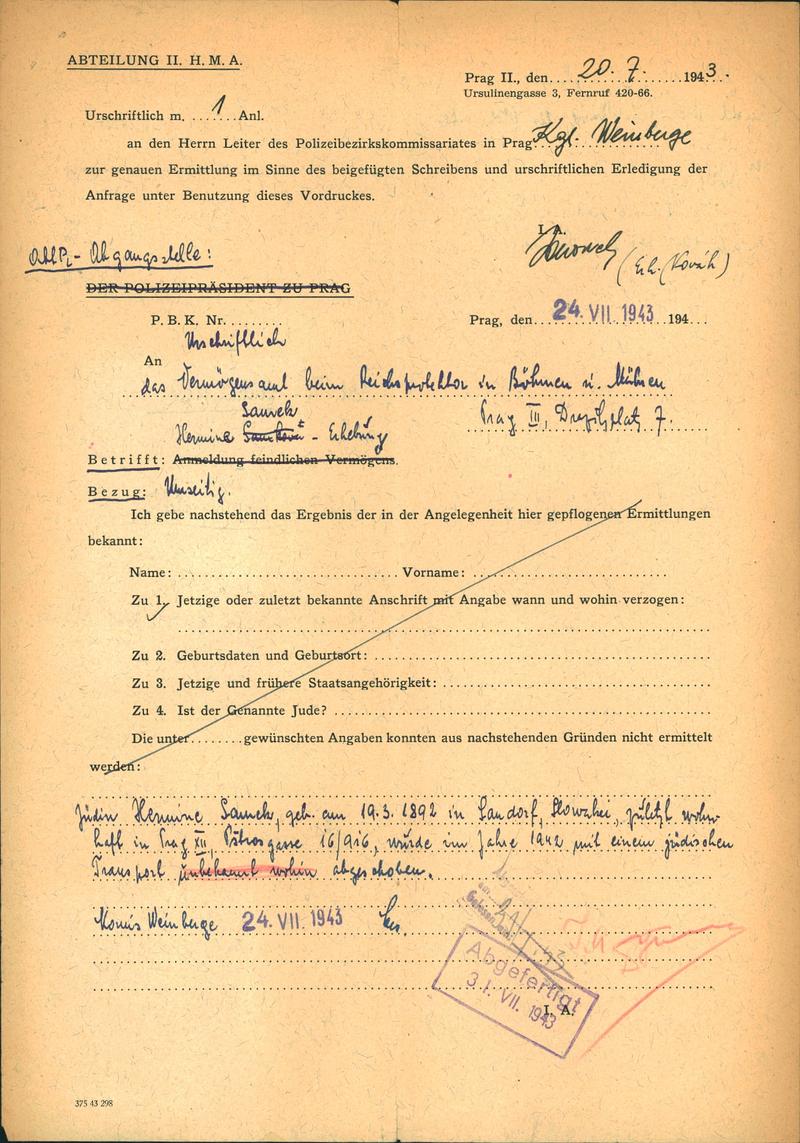 ABTEILUNG II. H. M. A.
Prag II., den....20. 7.......1943.
Ursulinengasse 3, Fernruf 420-66.
Urschriftlich m. ....1...Anl.
an den Herrn Leiter des Polizeibezirkskommissariates in Prag Kgl. Weinberge
zur genauen Ermittlung im Sinne des beigefügten Schreibens und urschriftlichen Erledigung der
Anfrage unter Benutzung dieses Vordruckes.
I. A.
Abgangsstelle:
DER POLIZEIPRÄSIDENT ZU PRAG
P. B. K. Nr. ........
Prag, den....24. VII 1943....194...
Urschriftlich
An
das Vermögensamt beim Reichsprotektor in Böhmen u. Mähren
Samek
Prag III, 7.
Hermine - Erhebung
Betrifft: Anmeldung feindlichen Vermögens.
Bezug: Umseitig.
Ich gebe nachstehend das Ergebnis der in der Angelegenheit hier gepflogenen Ermittlungen
bekannt:
Name: ................................ Vorname: ............................
Zu 1. Jetzige oder zuletzt bekannte Anschrift mit Angabe wann und wohin verzogen:
Zu 2. Geburtsdaten und Geburtsort: ................................................
Zu 3. Jetzige und frühere Staatsangehörigkeit: .......................................
Zu 4. Ist der Genannte Jude? ......................................................
Die unter........gewünschten Angaben konnten aus nachstehenden Gründen nicht ermittelt
werden:
Jüdin Hermine Samek, geb. am 19.3. 1892 in Sandorf, Slowakei, zuletzt wohn-
haft in Prag XII, 16/916, wurde im Jahre 1942 mit einem jüdischen
Transport unbekannt wohin abgeschoben.
Weinberge 24. VII. 1943
Abgefertigt
31. VII. 1943
I. A.
375 43 298